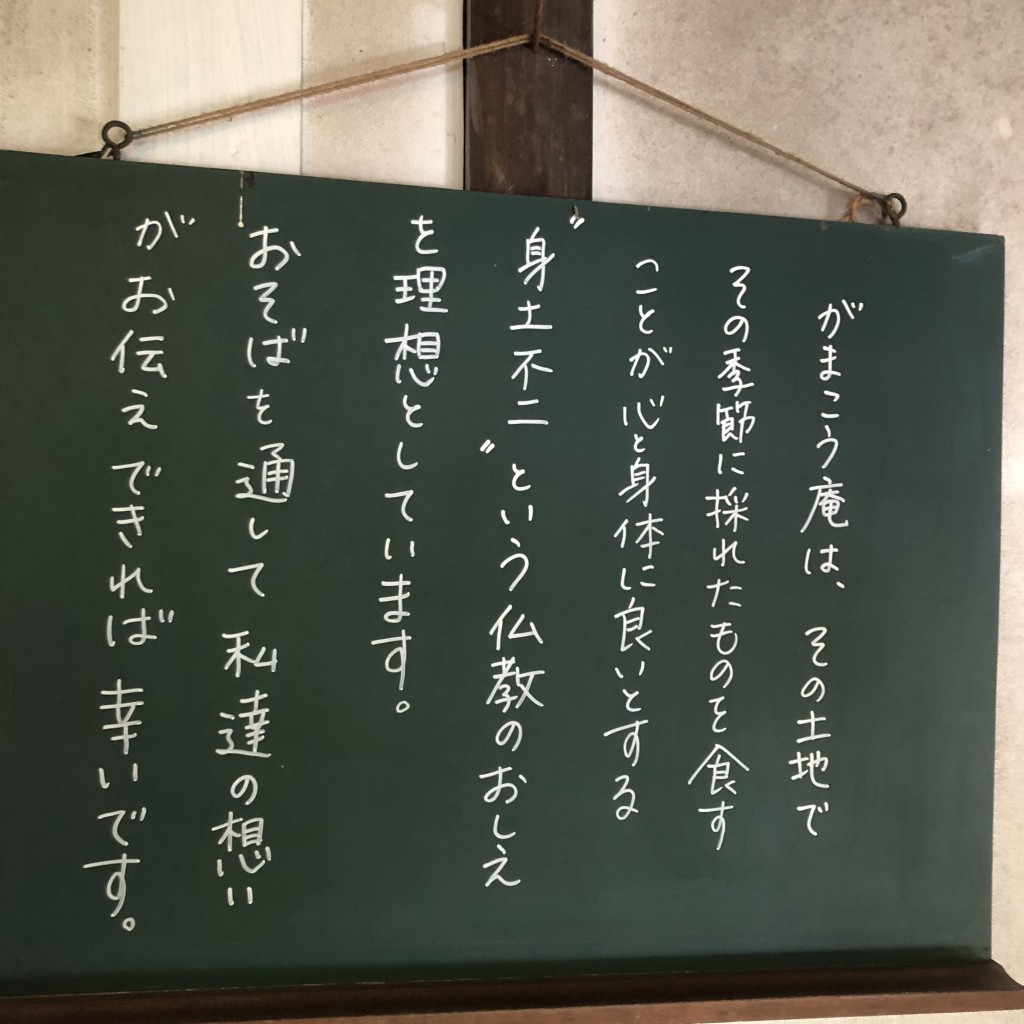 がまこう庵は、その土地で
その季節に採れたものを食す
ことが心と身体に良いとする
〝身土不二〟という仏教のおしえ
を理想としています。
おそばを通して私達の想い
がお伝えできれば幸いです。